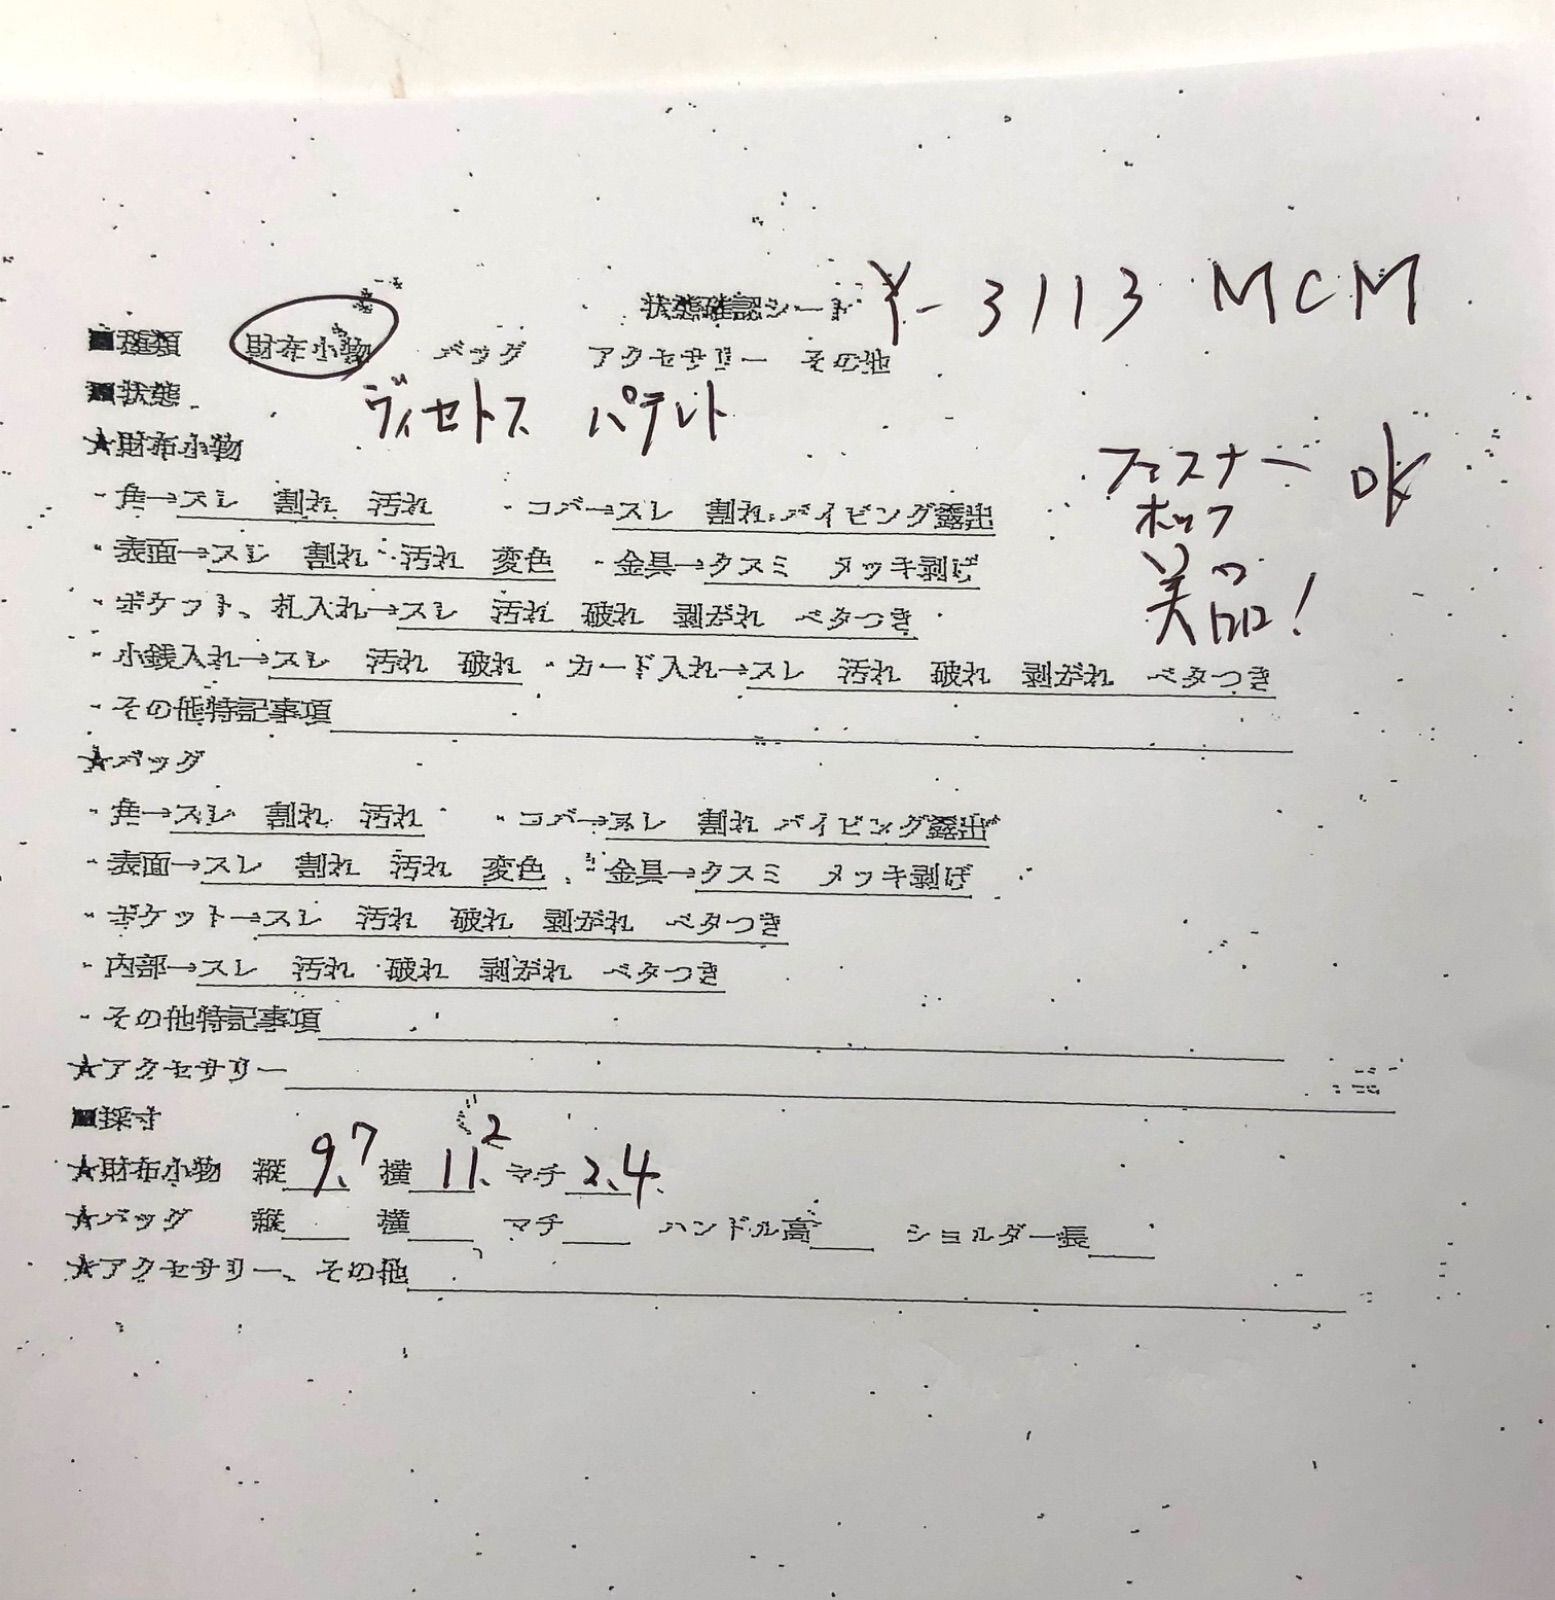 状態確認シート Y-3113 MCM
■種類 財布小物 バッグ アクセサリー その他
■状態 ヴィセトス パテント
★財布小物
ファスナー OK
ホック
美品!
・角→スレ 割れ 汚れ ・コバ→スレ 割れ パイピング露出
・表面→スレ 割れ 汚れ 変色 ・金具→クスミ メッキ剥げ
・ポケット、札入れ→スレ 汚れ 破れ 剥がれ ベタつき
・小銭入れ→スレ 汚れ 破れ ・カード入れ→スレ 汚れ 破れ 剥がれ ベタつき
・その他特記事項
★バッグ
・角→スレ 割れ 汚れ ・コバ→スレ 割れ パイピング露出
・表面→スレ 割れ 汚れ 変色 ・金具→クスミ メッキ剥げ
・ポケット→スレ 汚れ 破れ 剥がれ ベタつき
・内部→スレ 汚れ 破れ 剥がれ ベタつき
・その他特記事項
★アクセサリー
■採寸
★財布小物 縦 9.7 横 11.2 マチ 2.4
★バッグ 縦 横 マチ ハンドル高 ショルダー長
★アクセサリー、その他